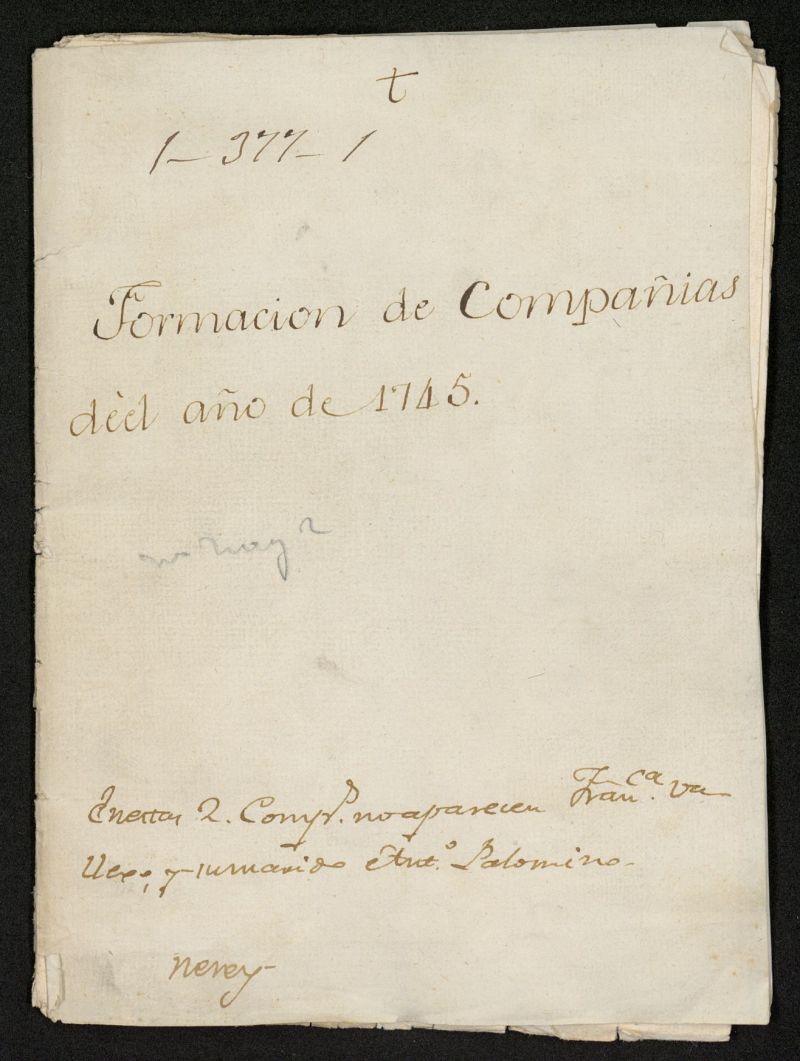 t
1-377-1
Formacion de Compañias
dèel año de 1745.
2
En estas 2. Comps. no aparecen Franca. Va
llexo, y su marido Anto. Palomino.